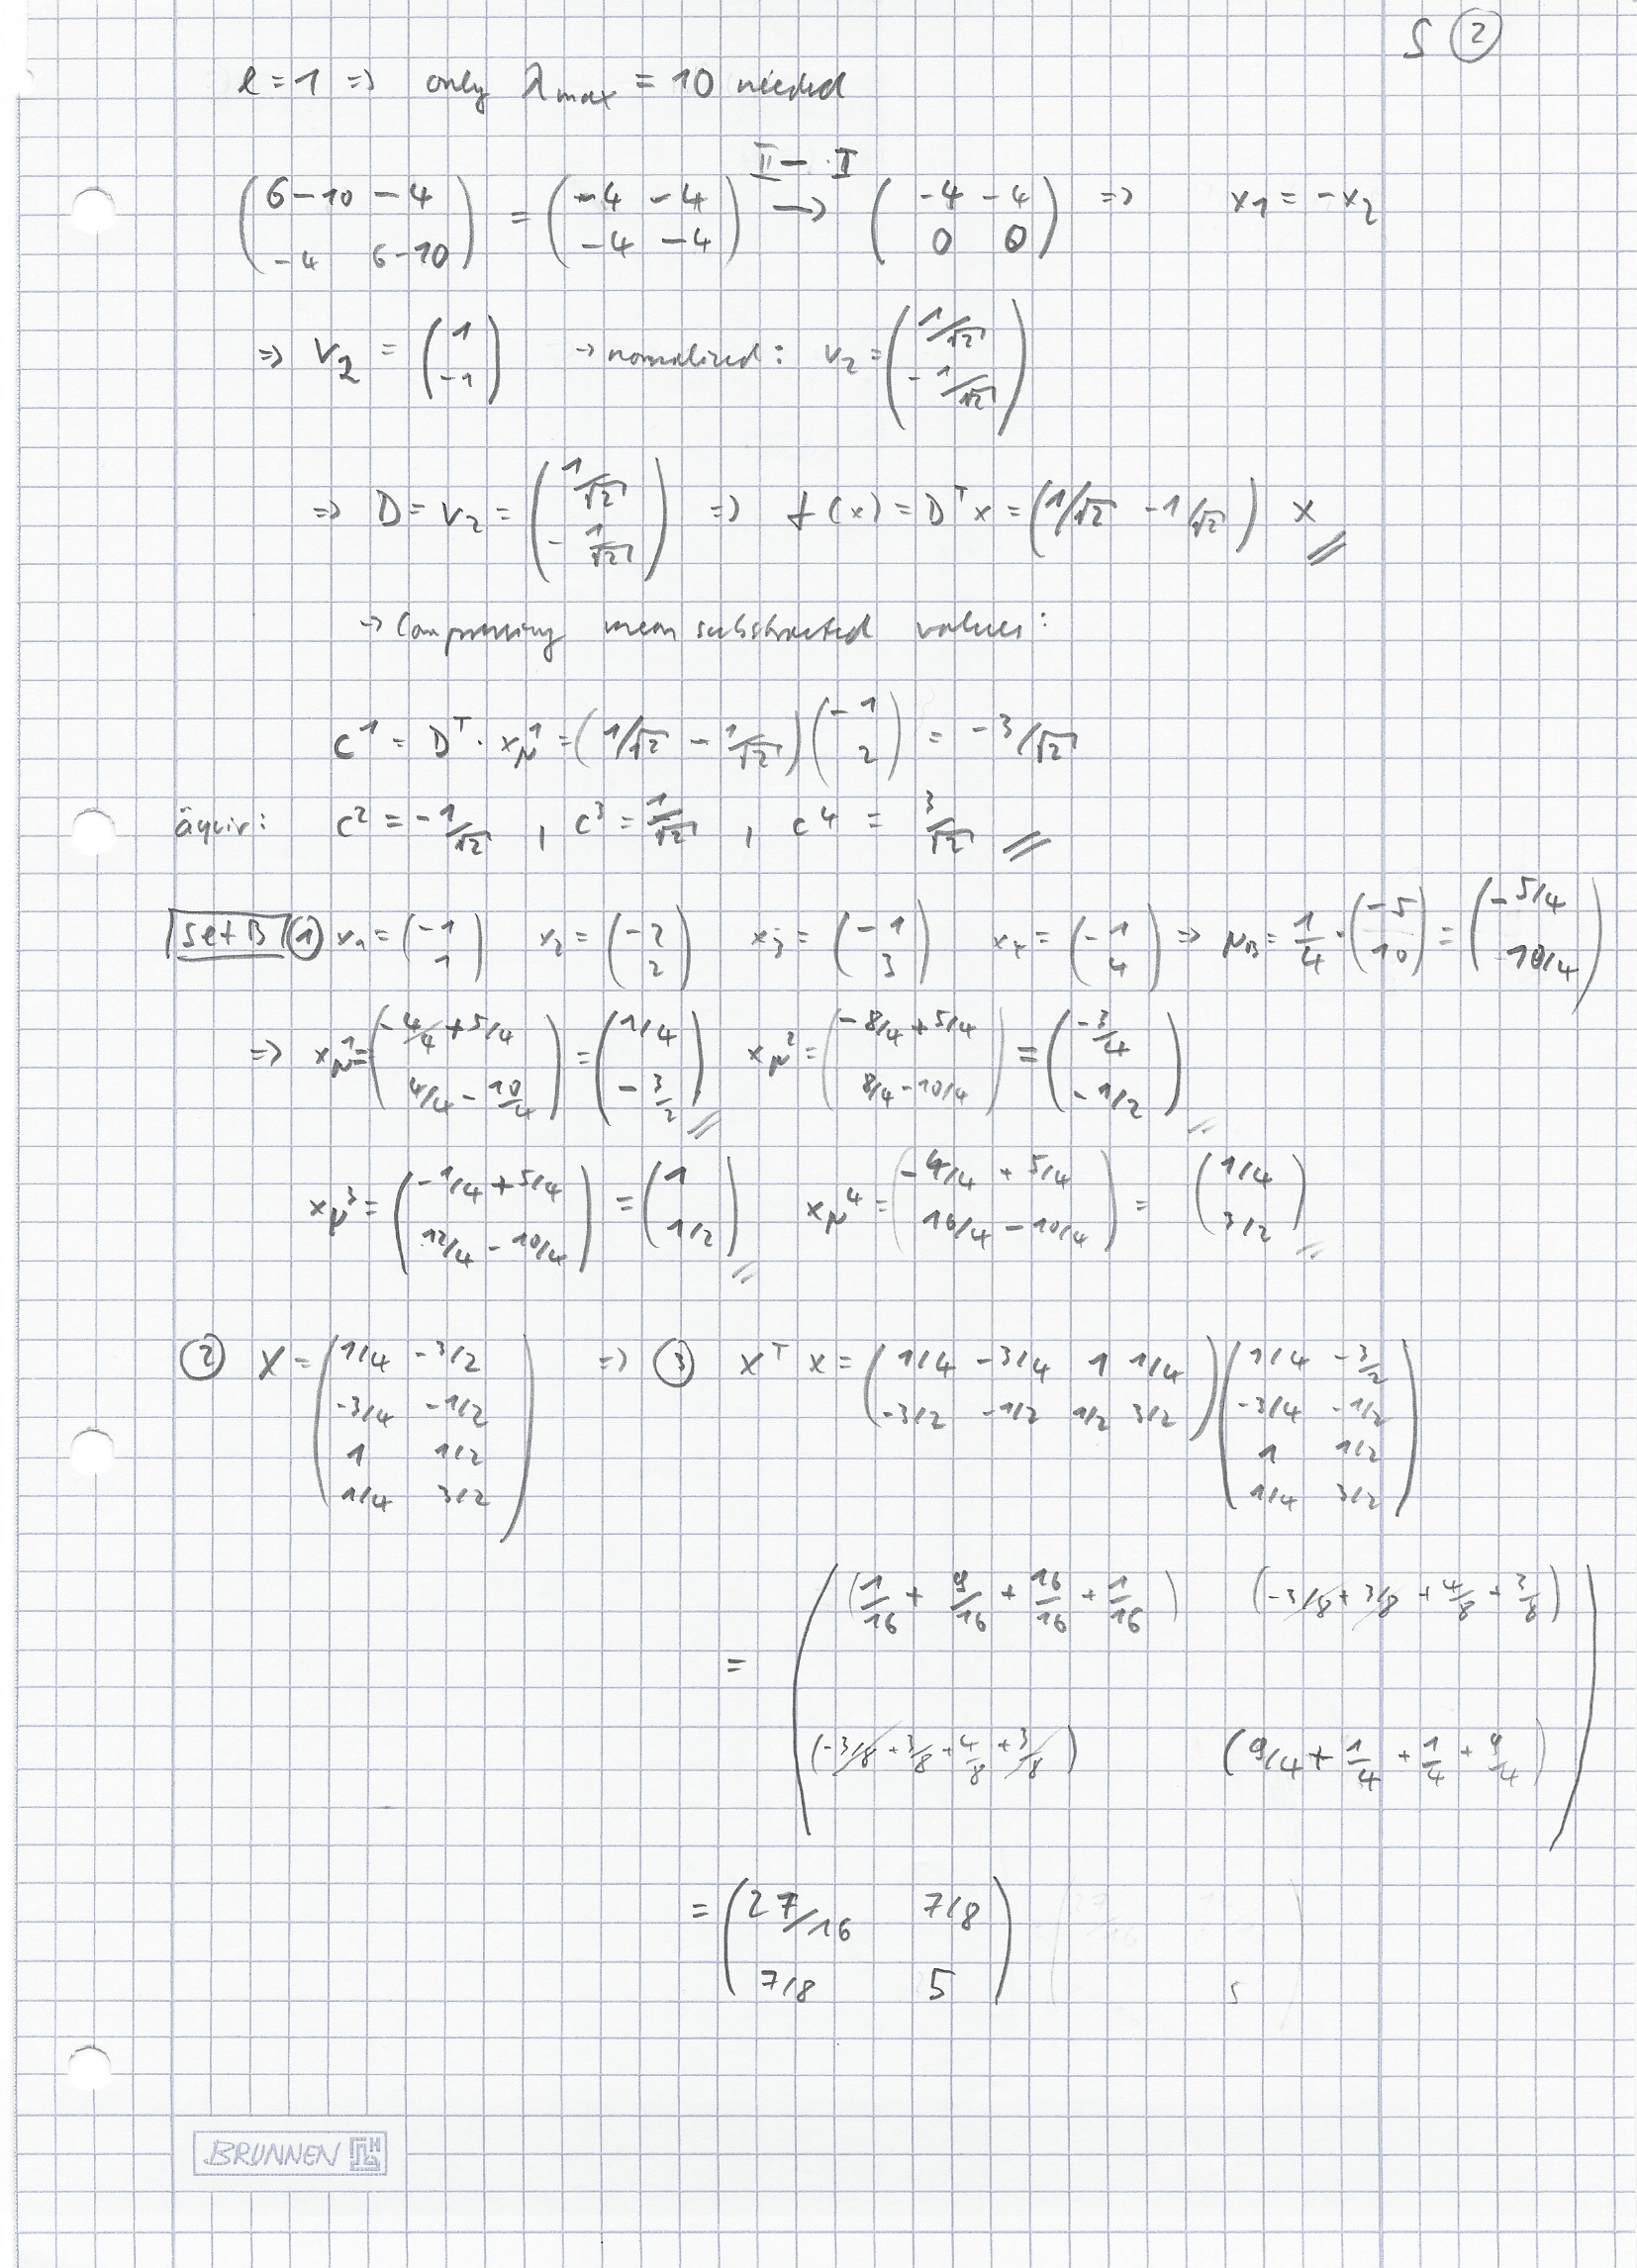 S ②
l = 1 => only λmax = 10 needed
II - I
( 6-10 -4 ; -4 6-10 ) = ( -4 -4 ; -4 -4 ) → ( -4 -4 ; 0 0 ) => x1 = -x2
=> v2 = ( 1 ; -1 ) → normalized: v2 = ( 1/√2 ; -1/√2 )
=> D = v2 = ( 1/√2 ; -1/√2 ) => f(x) = D^T x = ( 1/√2 -1/√2 ) x
→ Compressing mean substracted values:
c^1 = D^T · xμ^1 = ( 1/√2 - 1/√2 ) ( -1 ; 2 ) = -3/√2
äquiv: c^2 = -1/√2 , c^3 = 1/√2 , c^4 = 3/√2
Set B ① x1 = ( -1 ; 1 ) x2 = ( -2 ; 2 ) x3 = ( -1 ; 3 ) x4 = ( -1 ; 4 ) => μB = 1/4 · ( -5 ; 10 ) = ( -5/4 ; 10/4 )
=> xμ^1 = ( -4/4 + 5/4 ; 4/4 - 10/4 ) = ( 1/4 ; -3/2 ) xμ^2 = ( -8/4 + 5/4 ; 8/4 - 10/4 ) = ( -3/4 ; -1/2 )
xμ^3 = ( -1/4 + 5/4 ; 12/4 - 10/4 ) = ( 1 ; 1/2 ) xμ^4 = ( -4/4 + 5/4 ; 16/4 - 10/4 ) = ( 1/4 ; 3/2 )
② X = ( 1/4 -3/2 ; -3/4 -1/2 ; 1 1/2 ; 1/4 3/2 ) => ③ X^T X = ( 1/4 -3/4 1 1/4 ; -3/2 -1/2 1/2 3/2 ) ( 1/4 -3/2 ; -3/4 -1/2 ; 1 1/2 ; 1/4 3/2 )
= ( (1/16 + 9/16 + 16/16 + 1/16) (-3/8 + 3/8 + 4/8 + 3/8) ; (-3/8 + 3/8 + 4/8 + 3/8) (9/4 + 1/4 + 1/4 + 9/4) )
= ( 27/16 7/8 ; 7/8 5 )
BRUNNEN